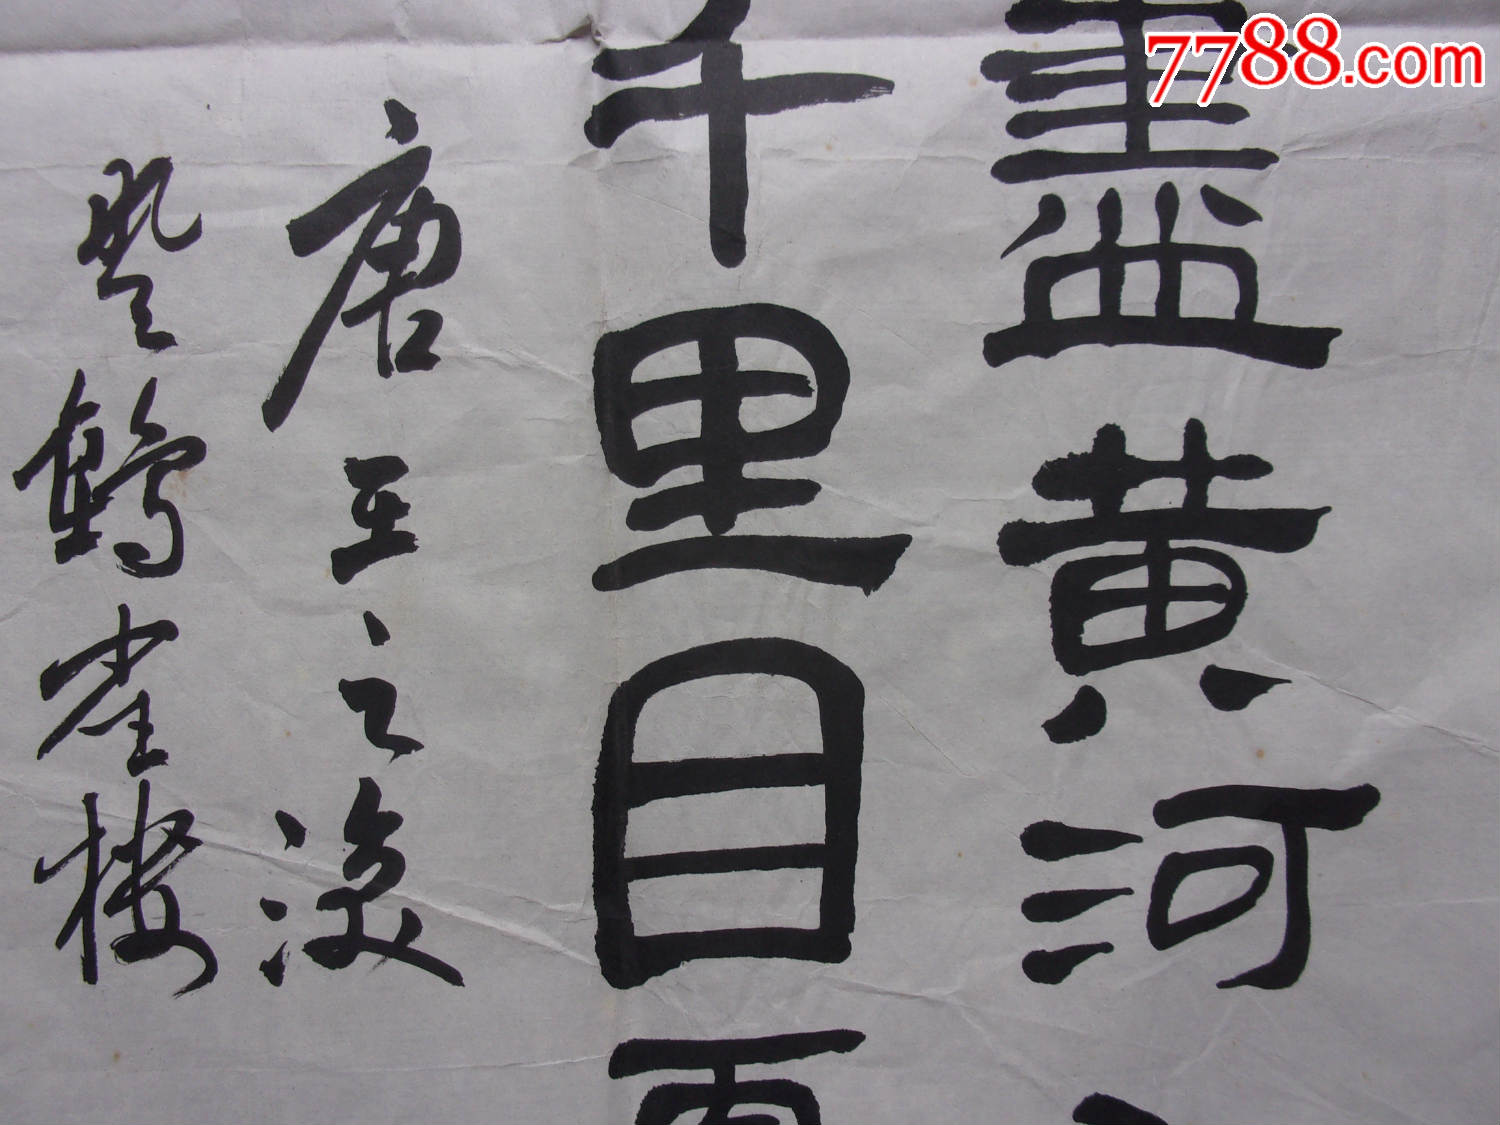 7788.com
盡黄河
千里目
唐王之渙
登鸛雀樓